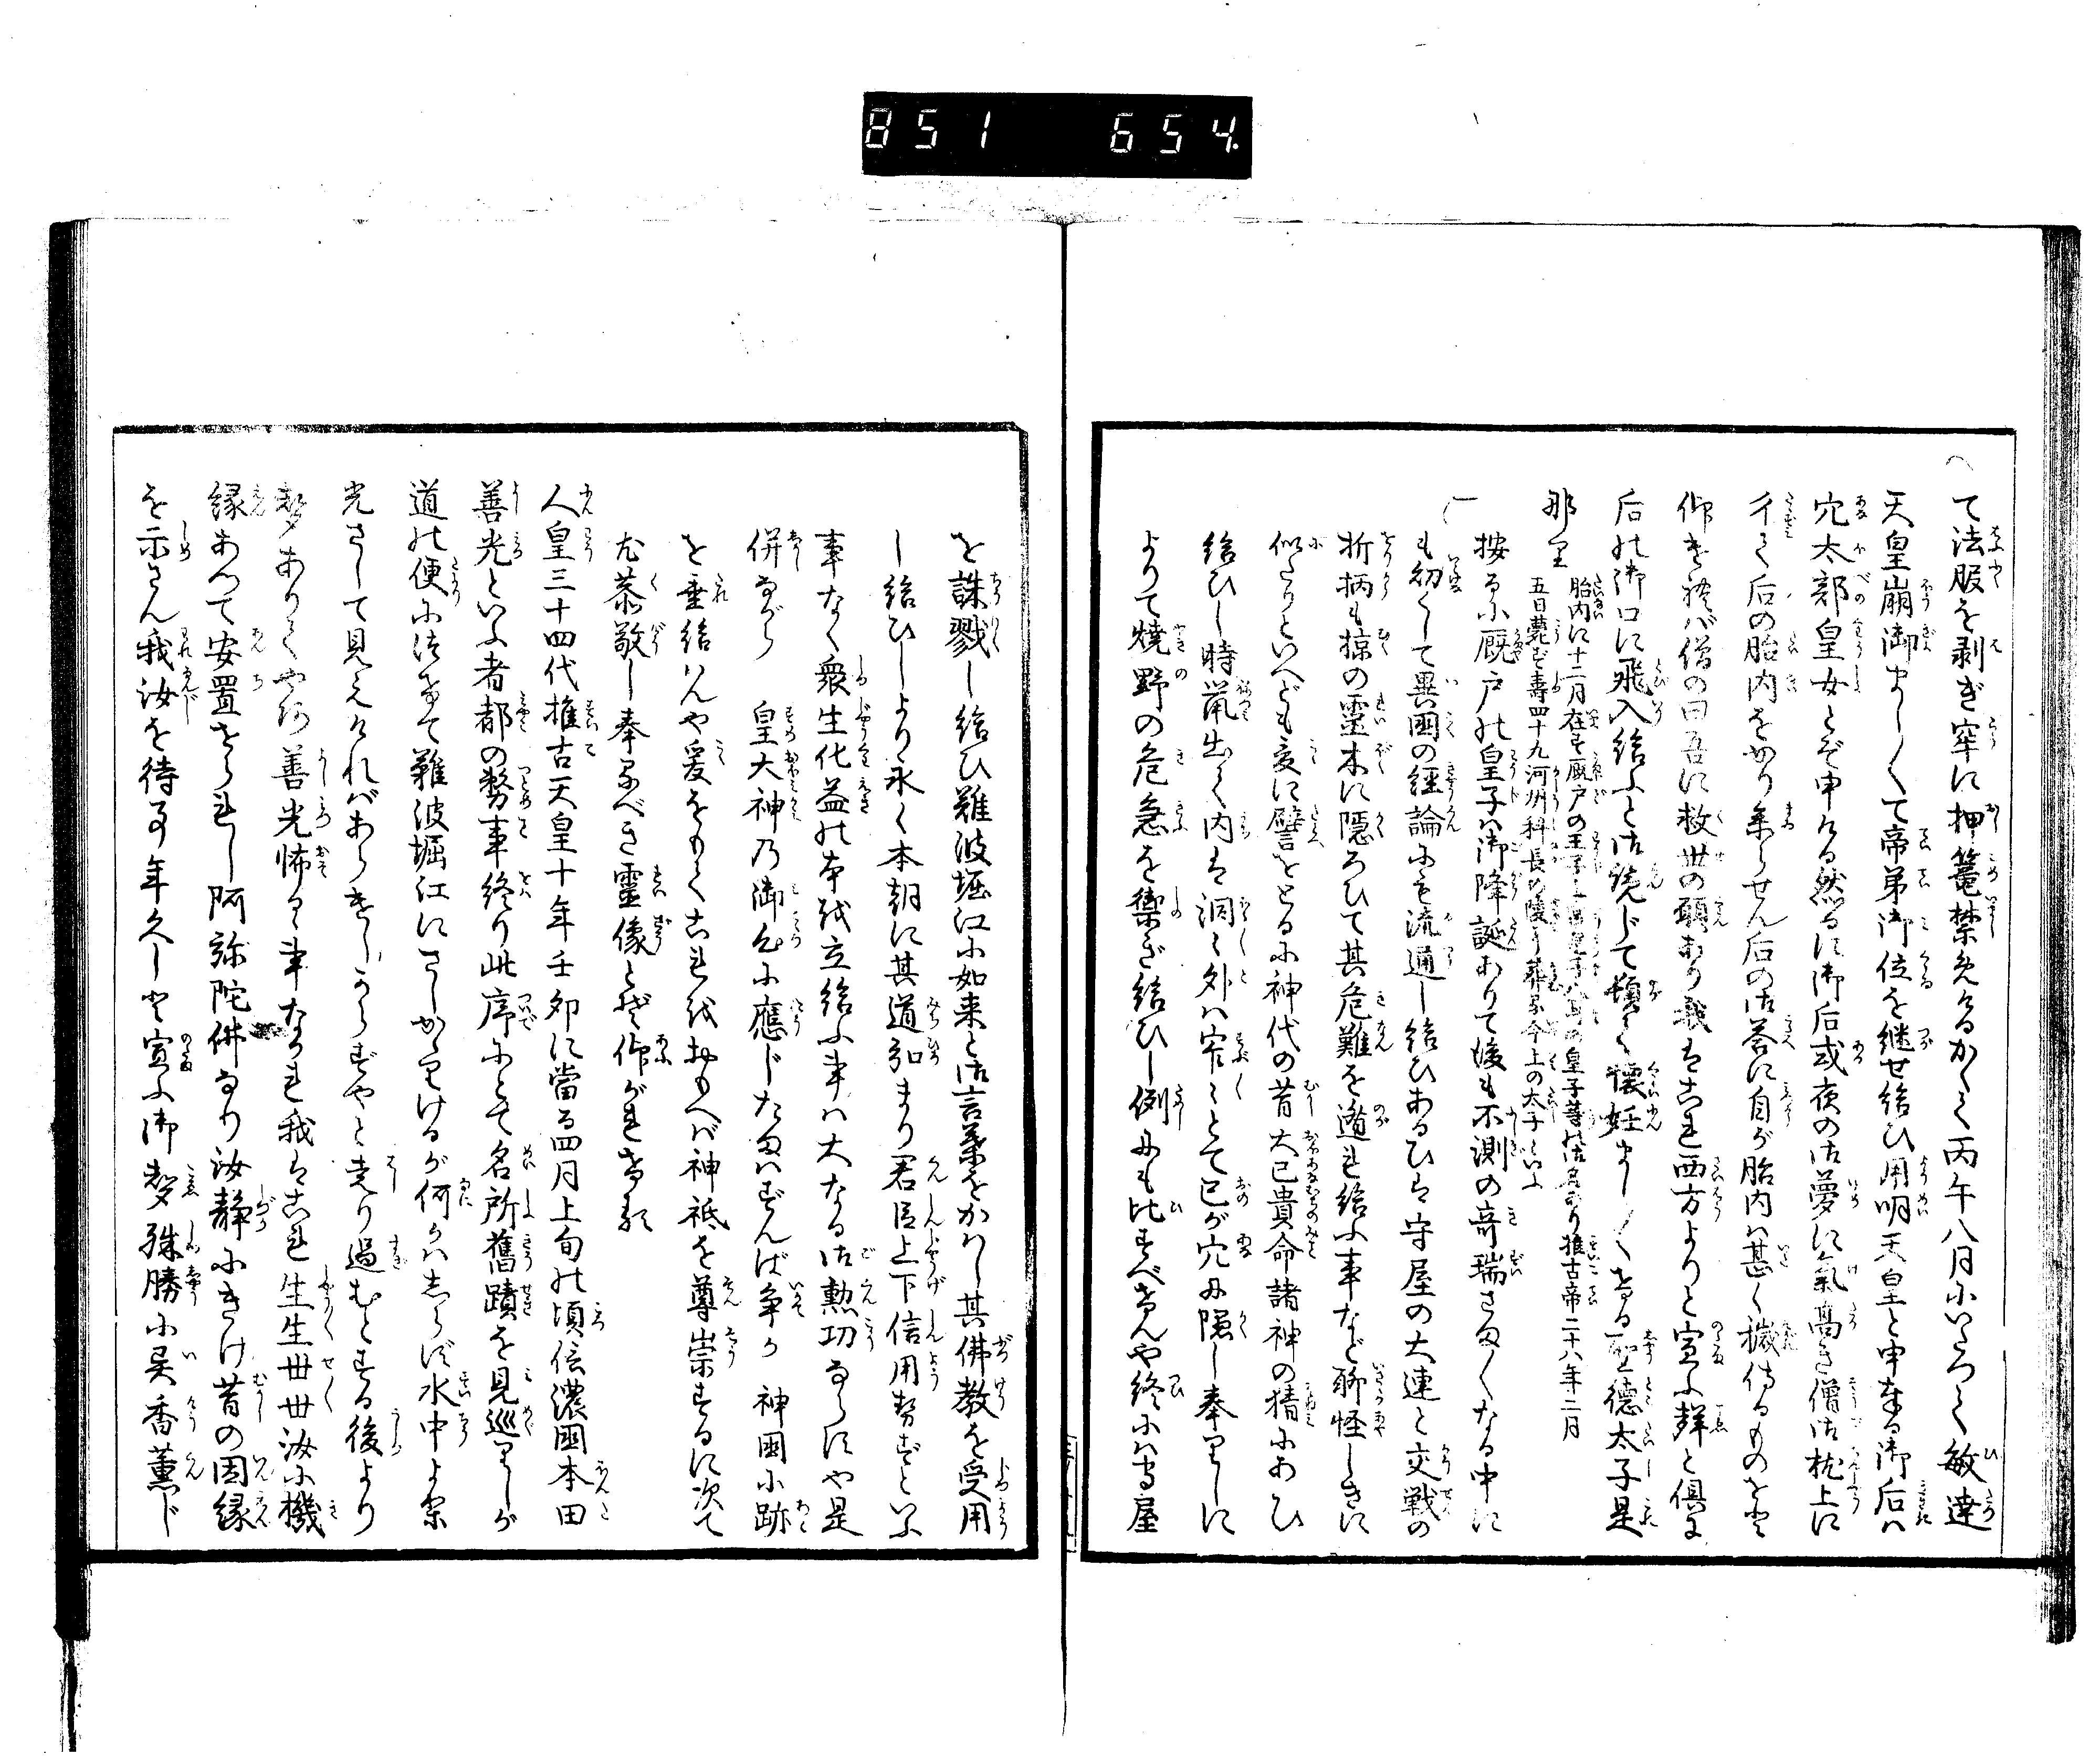 851 654.
て法服を剥ぎ牢に押篭禁めけるかくて丙午八月にいたつて敏達
天皇崩御ましましくて帝弟御位を継せ給ひ用明天皇と申奉る御后ハ
穴太部皇女とぞ申ける然るに御后或夜の御夢に氣高き僧御枕上に
イて后の胎内をかり参らせん后の御答に自が胎内ハ甚く穢侍るものをと
仰を禮バ僧の曰吾に救世の願あり我はこれ西方よりと宣ふ聲と倶に
后の御口に飛入給ふと御覧じて懐妊ましましくける聖徳太子是
那里 胎内に十二月在す厩戸の王子
皇子等の御名あり推古帝二十八年二月
五日薨ず壽四十九河州科長の陵に葬る今上の太子といふ
按るに厩戸の皇子ハ御降誕ありて後も不測の奇瑞さまくなる中に
も幼くして異國の經論にも流通し給ひあるひは守屋の大連と交戦の
折柄も掠の靈木に隠ろひて其危難を遁れ給ふ事など聊怪しきに
似たりといへども爰に譬をとるに神代の昔大已貴命諸神の猜にあひ
給ひし時鼠出て内は洞々外ハ窄々とて已が穴に隠し奉りしに
よりて燒野の危急を禦ぎ給ひし例にも比すべけんや終にハ守屋
を誅戮し給ひ難波堀江に如来と御言葉をかハし其佛教を受用
し給ひしより永く本朝に其道弘まり君臣上下信用せずといふ
事なく衆生化益の本域立給ふ事ハ大なる御勲功ならずや是
併ながら 皇大神乃御心に應じたまハずんば争か 神國に跡
を垂給ハんや爰をもてこれをおもへバ神祇を尊崇するに次て
尤恭敬し奉るべき靈像とぞ仰がれける
人皇三十四代推古天皇十年壬卯に當る四月上旬の頃信濃國本田
善光といふ者都の勢事終り此序にとて名所舊蹟を見巡りしが
道の便に法をて難波堀江にさしかゝりけるが何かハしらず水中より
光さして見えけれバあらぎしからずやと走り過むとする後より
聲ありてやよ善光怖るゝ事なかれ我はこれ生生世世汝に機
縁あつて安置せられし阿弥陀佛なり汝静にきけ昔の因縁
を示さん我汝を待事年久しと宣ふ御聲殊勝に異香薫じ